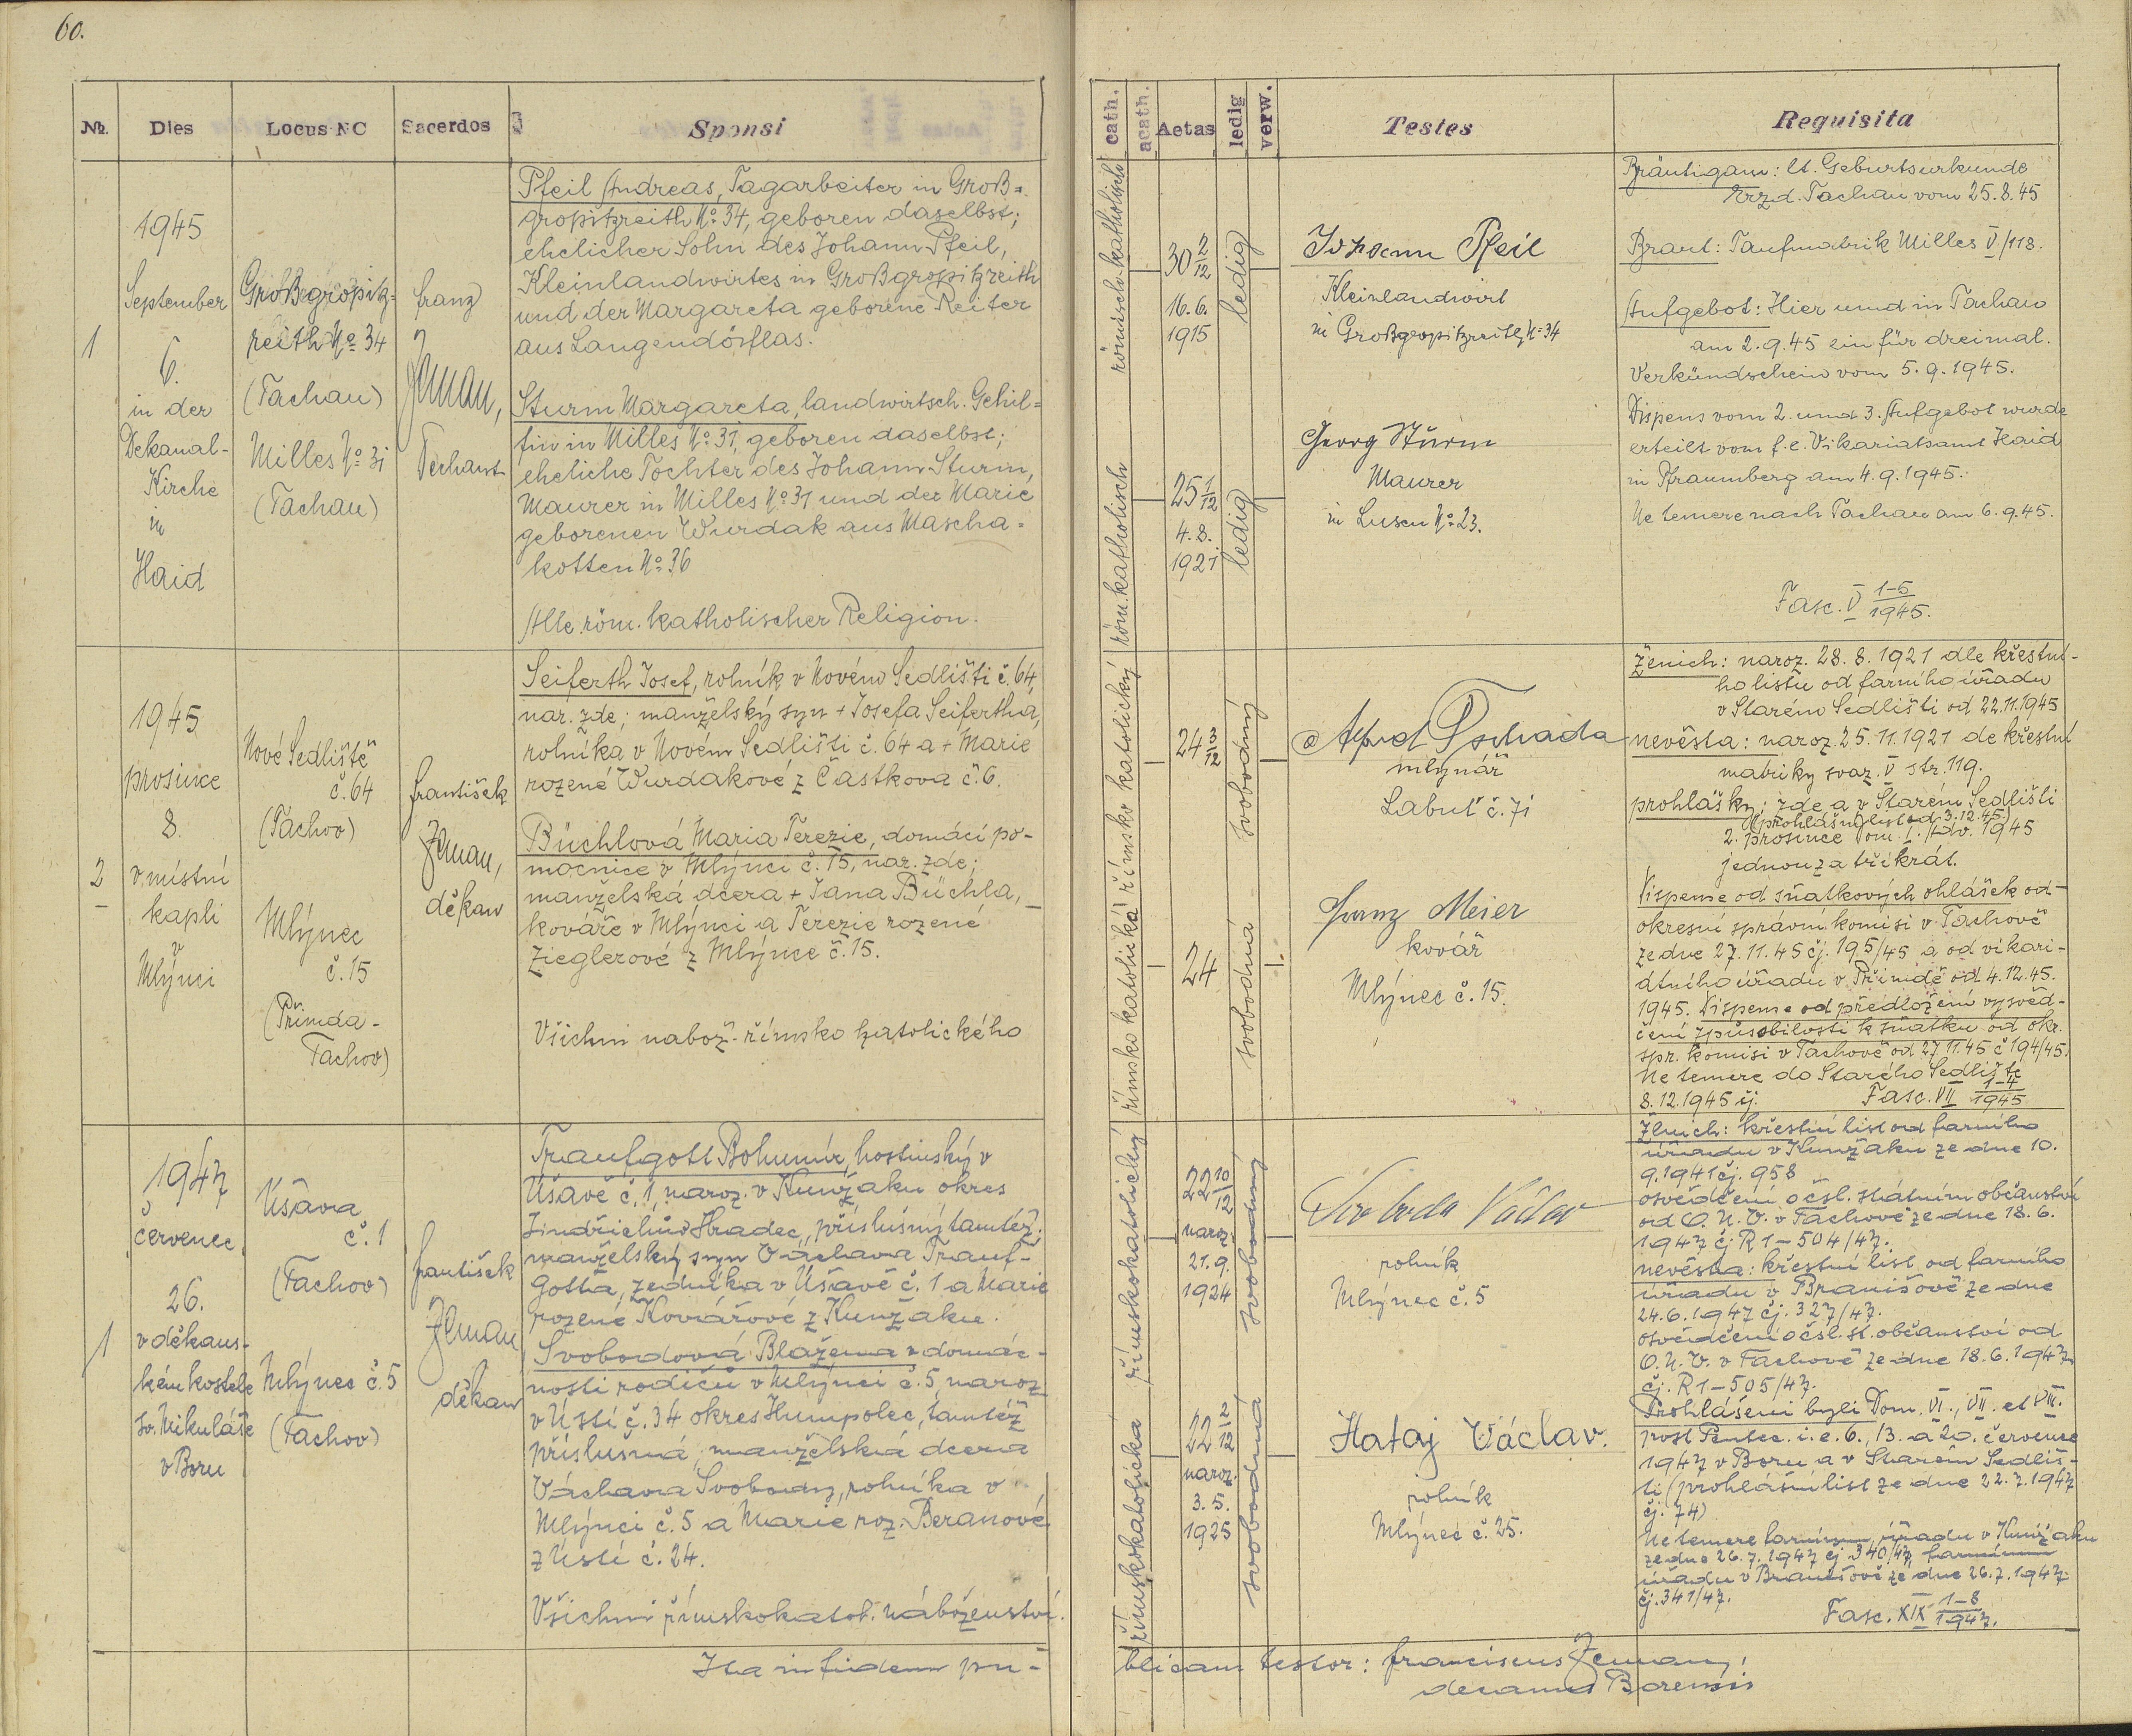 60.
№.
Dies
Locus NC
Sacerdos
Sponsi
cath.
acath.
Aetas
ledig
verw.
Testes
Requisita
1
1945
September
6.
in der
Dekanal-
Kirche
in
Haid
Großgropitz-
reith No 34
(Tachau)
Milles No 31
(Tachau)
Franz
Zeman,
Dechant
Pfeil Andreas, Tagarbeiter in Groß=
gropitzreith No. 34, geboren daselbst;
ehelicher Sohn des Johann Pfeil,
Kleinlandwirtes in Großgropitzreith
und der Margareta geborene Reiter
aus Langendörflas.
Sturm Margareta, landwirtsch. Gehil=
fin in Milles No. 31, geboren daselbst;
eheliche Tochter des Johann Sturm,
Maurer in Milles No. 31 und der Marie
geborenen Wurdak aus Mascha=
kotten No. 36
Alle röm. katholischer Religion.
römisch katholisch
röm. katholisch
30 2/12
16. 6.
1915
25 1/12
4. 8.
1921
ledig
ledig
Johann Pfeil
Kleinlandwirt
in Großgropitzreith No 34
Georg Sturm
Maurer
in Lusen No. 23.
Bräutigam: lt. Geburtsurkunde
Erzd. Tachau vom 25.8.45
Braut: Taufmatrik Milles V/118.
Aufgebot: Hier und in Tachau
am 2.9.45 ein für dreimal.
Verkündschein vom 5.9.1945.
Dispens vom 2. und 3. Aufgebot wurde
erteilt vom f. e. Vikariatsamt Haid
in Pfraumberg am 4.9.1945.
Ne temere nach Tachau am 6.9.45.
Fasc. V 1-5/1945.
2
1945
prosince
8.
v místní
kapli
v
Mlýnci
Nové Sedliště
č. 64
(Tachov)
Mlýnec
č. 15
(Přimda-
Tachov)
František
Zeman,
děkan
Seiferth Josef, rolník v Novém Sedlišti č. 64,
nar. zde; manželský syn + Josefa Seifertha,
rolníka v Novém Sedlišti č. 64 a + Marie
rozené Wurdakové z Částkova č. 6.
Büchlová Maria Terezie, domácí po-
mocnice v Mlýnci č. 15, nar. zde;
manželská dcera + Jana Büchla,
kováře v Mlýnci a Terezie rozené
Zieglerové z Mlýnce č. 15.
Všichni nábož. římsko katolického
římsko katolický
římsko katolická
24 3/12
24
svobodný
svobodná
mlynář
Labuť č. 71
Franz Meier
kovář
Mlýnec č. 15.
Ženich: naroz. 28. 8. 1921 dle křestní-
ho listu od farního úřadu
v Starém Sedlišti od 22.11.1945
nevěsta: naroz. 25.11.1921 de křestní
matriky svaz. V str. 119.
prohlášky: zde a v Starém Sedlišti
(prohlášní list od 3.12.45)
2. prosince Dom. I. Adv. 1945
jednou za třikrát.
Dispense od sňatkových ohlášek od
okresní správní komisi v Tachově
ze dne 27.11.45 čj. 195/45 a od vikari-
átního úřadu v Přimdě od 4.12.45.
1945. Dispense od předložení vysvěd-
čení způsobilosti k sňatku od okr.
spr. komisi v Tachově od 27.11.45 č 194/45.
Ne temere do Starého Sedliště
8.12.1945 čj.
Fasc. VII 1-4/1945
1
1947
červenec
26.
v děkans-
kém kostele
sv. Mikuláše
v Boru
Úšava
č. 1
(Tachov)
Mlýnec č. 5
(Tachov)
František
Zeman
děkan
Traufgott Bohumír, hostinský v
Úšavě č. 1, naroz. v Kunžaku okres
Jindřichův Hradec, příslušný tamtéž;
manželský syn Václava Trauf-
gotta, zedníka v Úšavě č. 1 a Marie
rozené Kovářové z Kunžaku.
Svobodová Blažena v domác-
nosti rodičů v Mlýnci č. 5, naroz.
v Ústí č. 34 okres Humpolec, tamtéž
příslušná, manželská dcera
Václava Svobody, rolníka v
Mlýnci č. 5 a Marie roz. Beranové
z Ústí č. 24.
Všichni římskokatol. náboženství.
římskokatolický
římskokatolická
22 10/12
naroz.
21. 9.
1924
22 2/12
naroz.
3. 5.
1925
svobodný
svobodná
Svoboda Václav
rolník
Mlýnec č. 5
Hataj Václav.
rolník
Mlýnec č. 25.
Ženich: křestní list od farního
úřadu v Kunžaku ze dne 10.
9.1941 čj. 958
osvědčení o čsl. státním občanství
od O. N. V. v Tachově ze dne 18. 6.
1947 čj R 1 – 504/47.
nevěsta: křestní list od farního
úřadu v Branišově ze dne
24.6.1947 čj. 327/47.
osvědčení o čsl. st. občanství od
O. N. V. v Tachově ze dne 18.6.1947
čj. R 1 – 505/47.
Prohlášeni byli Dom. VI., VII. et VIII.
post Pentec. i. e. 6., 13. a 20. července
1947 v Boru a v Starém Sedliš-
ti (prohlášní list ze dne 22.7.1947
čj. 74)
Ne temere farnímu úřadu v Kunžaku
ze dne 26.7.1947 čj 340/47, farnímu
úřadu v Branišově ze dne 26.7.1947
čj. 341/47.
Fasc. XIX 1-8/1947.
Ita in fidem pu-
blicam testor: Franciscus Zeman,
decanus Borensis